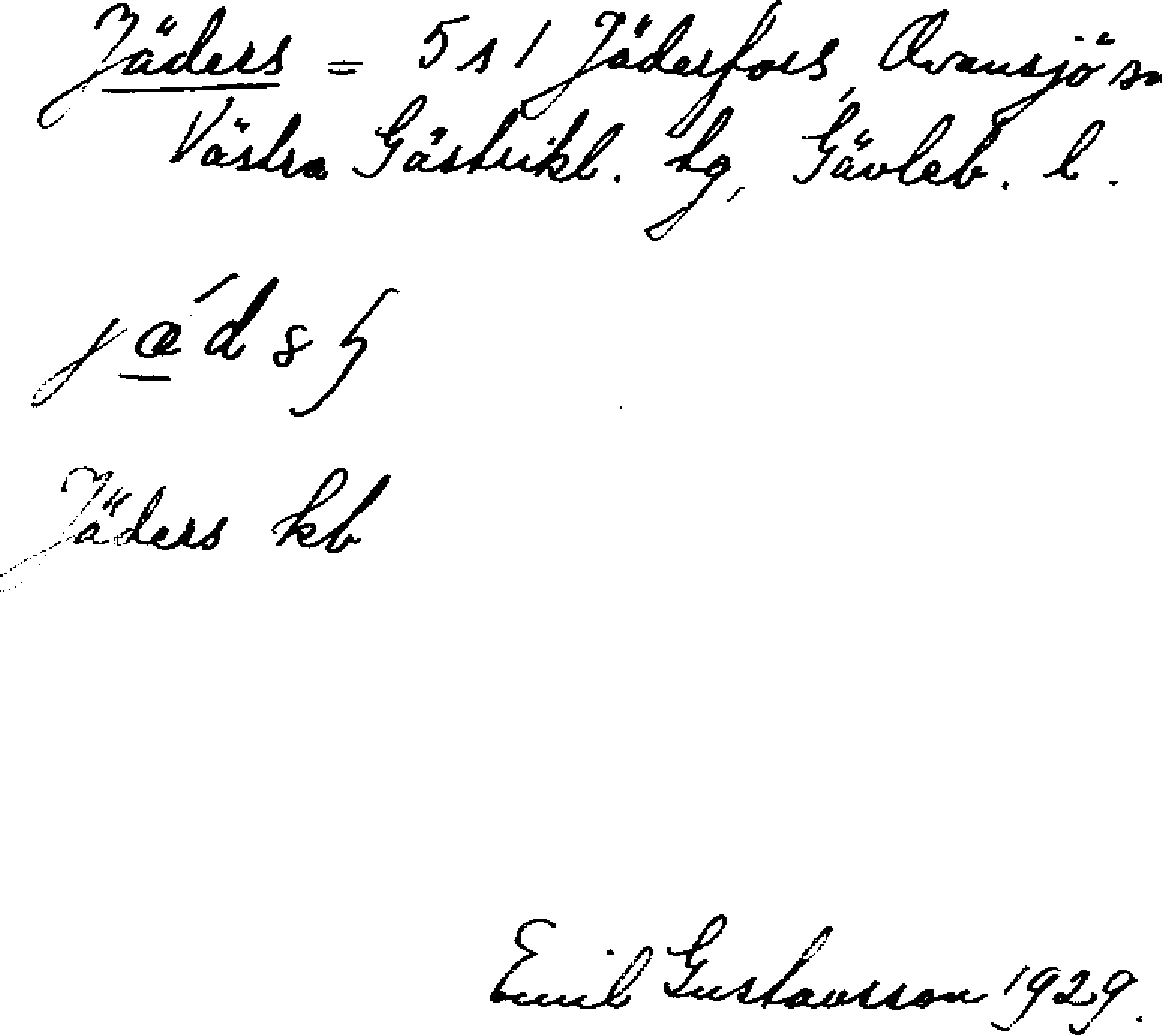 Jäders = 5 s 1 Jäderfors, Ovansjö sn
Västra Gästrikl. tg, Gävleb. l.
jæ´dəʂ
Jäders kb
Emil Gustavsson 1929.